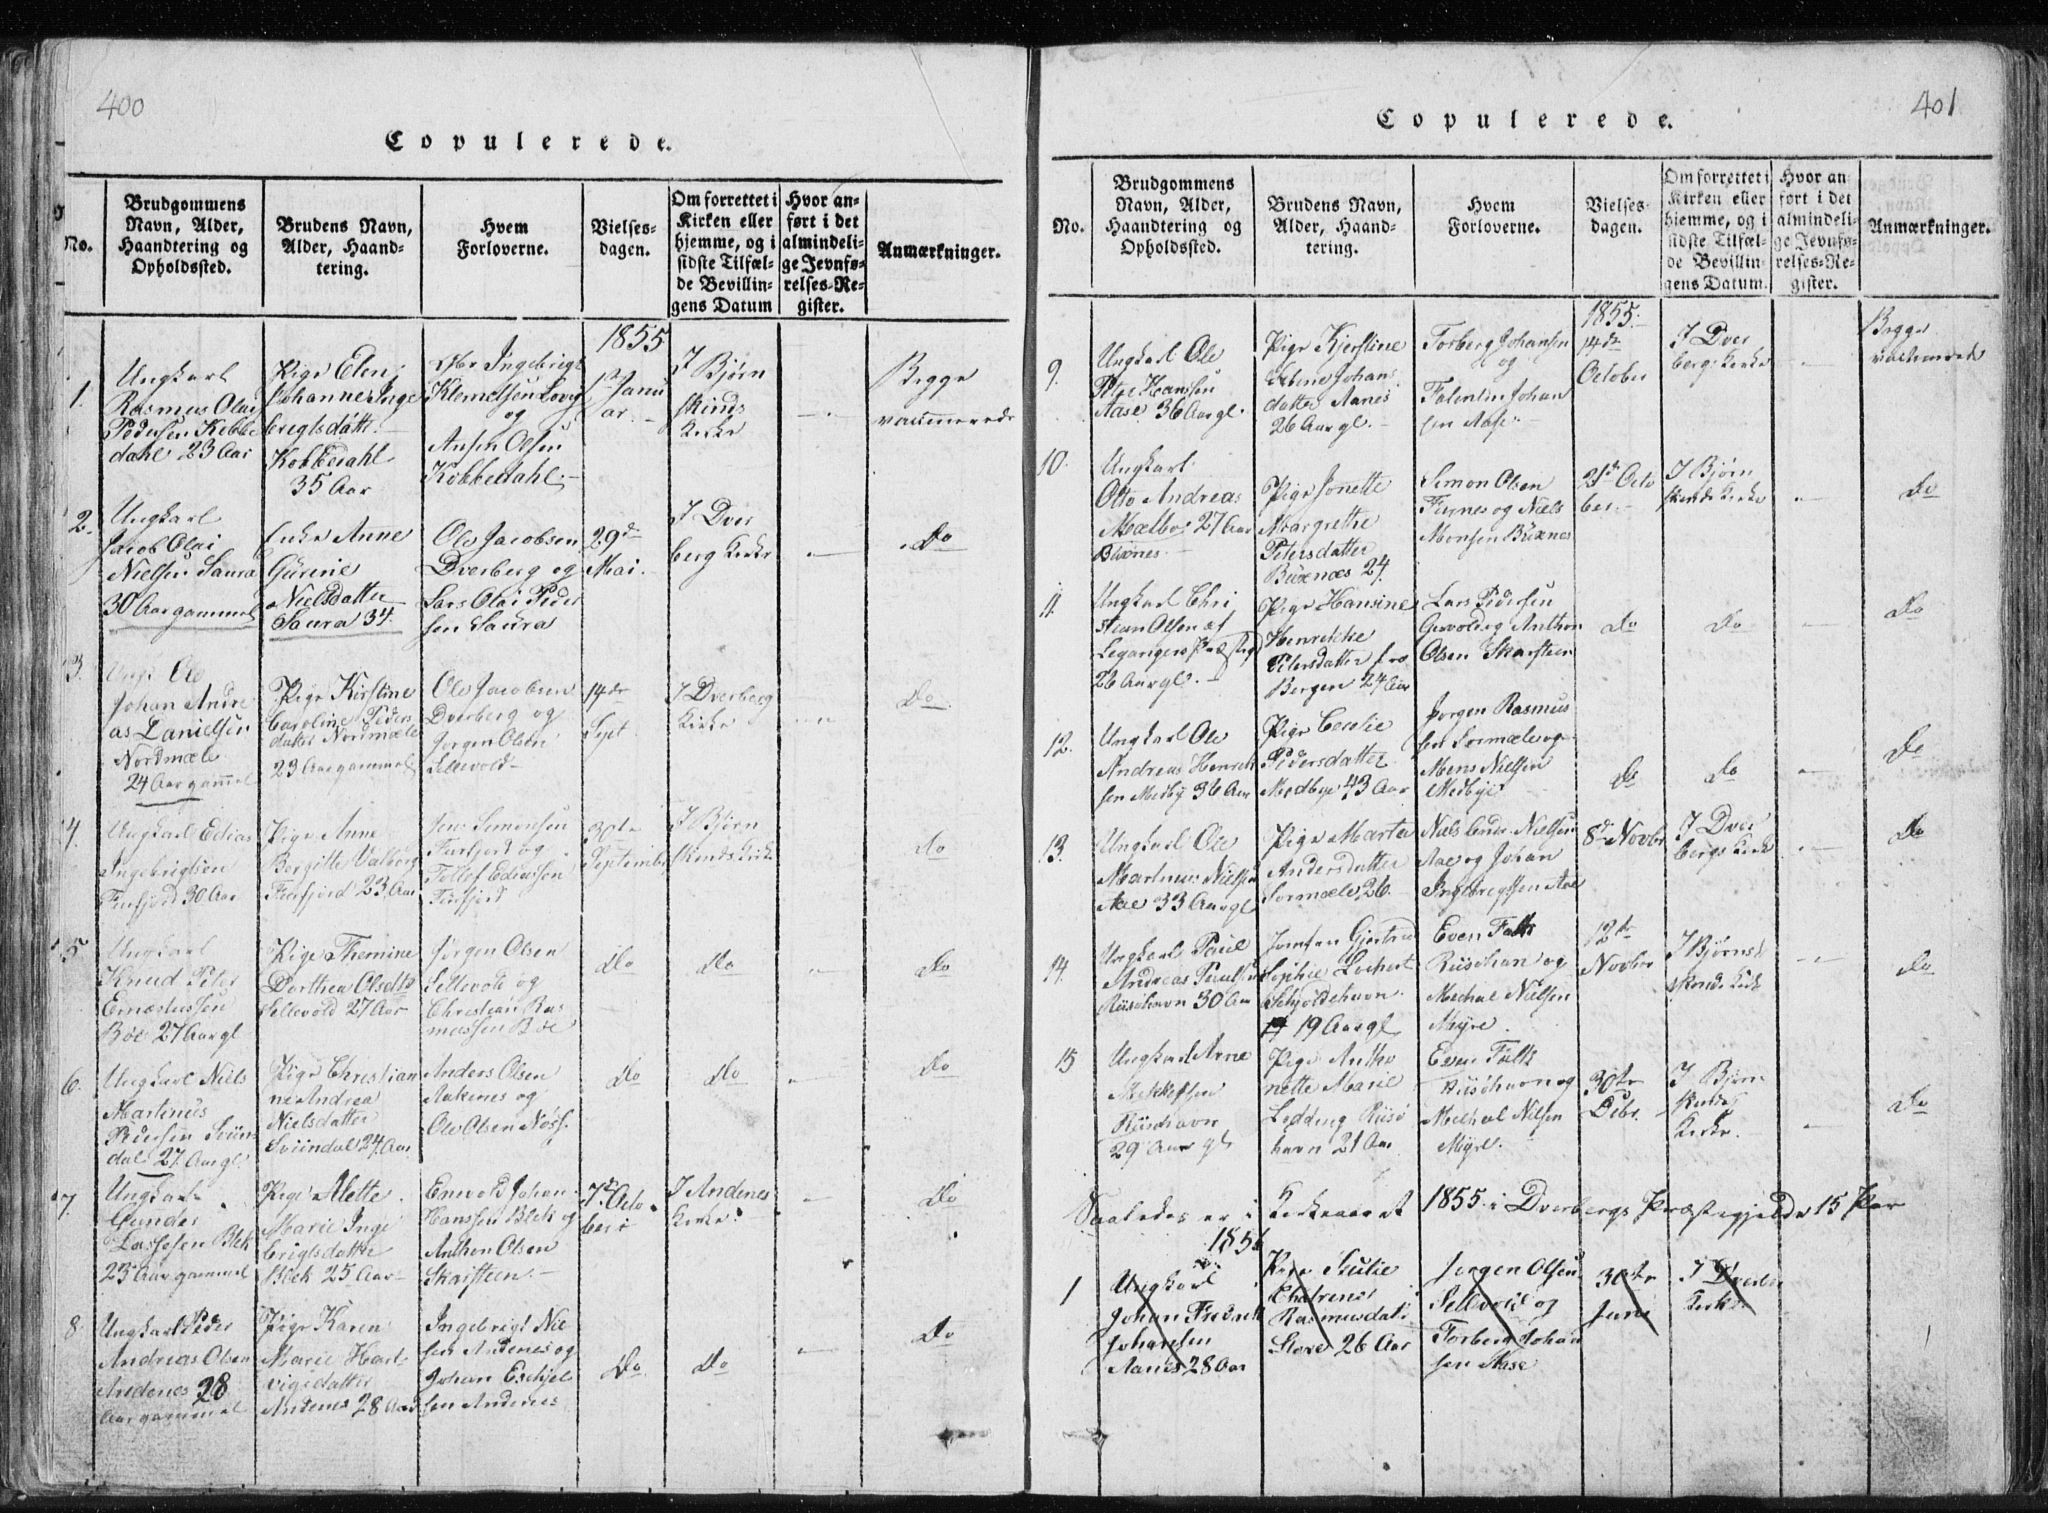 400
Copulerede.
No.
Brudgommens
Navn, Alder,
Haandtering og
Opholdssted.
Brudens Navn,
Alder, Haand-
tering.
Hvem
Forloverne.
Vielses-
dagen.
Om forrettet i
Kirken eller
hjemme, og i
sidste Tilfæl-
de Bevillin-
gens Datum
Hvor an-
ført i det
almindeli-
ge Jevnfø-
relses-Re-
gister.
Anmærkninger.
1.
Ungkarl
Rasmus Olai
Pedersen Kobbe
dahl 23 Aar
Pige Elen
Johanne Inge
brigtsdatt.
Kobbedahl
35 Aar
Ingebrigt
Klemetsen
og
Olsen
Kobbedahl
1855
1ste Janu
ar
I Bjørn
skinds
Kirke
Begge
vaccinerede
2.
Ungkarl
Jacob Olai
Nielsen Saura
30 Aar gammel
Enke Anne
Gurine
Nielsdatter
Saura 34.
Ole Jacobsen
Dverberg og
Lars Olai Peder
sen Saura
29de
Mai.
I Dver
berg Kirke
Do
3.
Ungk. Ole
Johan Andre
as Danielsen
Nordmæle
24 Aar gammel
Pige Kirstine
Caroline Peders
datter Normæle
23 Aar gammel
Ole Jacobsen
Dverberg og
Jørgen Olsen
Sellevold
14de
Sept
I Dverberg
Kirke
Do
4.
Ungkarl Edias
Ingebrigtsen
Finfjord 30 Aar
Pige Anne
Bergitte Valborg
Finfjord 23 Aar
Jens Simonsen
Finfjord og
Tollef Ediassen
Finfjord
30te
September
I Bjørn
skinds Kirke
Do
5.
Ungkarl
Knud Peter
Ernæstussen
Bøe 27 Aar gl
Pige Themine
Dorthea Olsdtr
Sellevold 27 Aar
Jørgen Olsen
Sellevold og
Christian Ras
mussen Bøe
Do
Do
Do
6.
Ungkarl Niels
Martinus
Pedersen Svin
dal 27 Aar gl.
Pige Christian
ne Andrea
Nielsdatter
Svindal 24 Aar
Anders Olsen
Aakenes og
Ole Olsen Nøss.
Do
Do
Do
7.
Ungkarl
Gunder
Lassesen Blek
23 Aar gammel
Pige Alette
Marie Inge
brigtsdatter
Blek 25 Aar
Envold Johan
Hanssen Blek og
Anthon Olsen
Skarsteen.
7de Octo
ber
I Andenes
Kirke
Do
8.
Ungkarl Peder
Andreas Olsen
Andenes 28
Aar gammel
Pige Karen
Marie Hart
vigsdatter
Andenes 28 Aar
Ingebrigt Nie
sen Andenes og
Johan Eschjel
sen Andenes
Do
Do
Do
401
Copulerede.
No.
Brudgommens
Navn, Alder,
Haandtering og
Opholdssted.
Brudens Navn,
Alder, Haand-
tering.
Hvem
Forloverne.
Vielses-
dagen.
Om forrettet i
Kirken eller
hjemme, og i
sidste Tilfæl-
de Bevillin-
gens Datum.
Hvor an-
ført i det
almindeli-
ge Jevnfø-
relses-Re-
gister.
Anmærkninger.
9.
Ungkarl Ole
Peter Hanssen
Aase 36 Aar gl.
Pige Kjerstine
Johans
datter Aanes
26 Aar gl.
Torberg Johansen
og
Falentin Johan
sen Aase
1855.
14de
October
I Dver
bergs Kirke
Begge
vaccinerede
10.
Ungkarl
Otto Andreas
Mælbo 27 Aar
Buxnes
Pige Jonette
Margrethe
Petersdatter
Buxnæs 24
Simon Olsen
Furnes og Niels
Monsen Buxnes
21de Octo
ber
I Bjørn
skinds Kirke
Do
11.
Ungkarl Chri
stian Olsen af
Legangers Præstgj
26 Aar gl.
Pige Hansine
Henrikke
Petersdatter fra
Bergen 27 Aar
Lars Pedersen
og Anthon
Olsen Skarsteen
Do
Do
Do
12.
Ungkarl Ole
Andreas Henrik
sen Medby 36 Aar
Pige Cecelie
Pedersdatter
Medbye 43 Aar
Jørgen Rasmus
sen Sormæle og
Mons Nielsen
Medbye
Do
Do
Do
13.
Ungkarl Ole
Martinus Nielsen
Aae 33 Aar gl
Pige Marta
Andersdatter
Sormæle 26
Niels Nielsen
Aae og Johan
Ingebrigtsen Aae
8de Novbr
I Dver
bergs Kirke
Do
14.
Ungkarl Paul
Andreas Paulsen
Risøhavn 30 Aar
Jomfru Gjertrud
Sophie Lockert
Skjoldehavn
19 Aar gl
Even Falk
Risøhavn og
Michal Nielsen
Myre
12te
Novbr
I Bjørn
skinds Kirk
Do
15
Ungkarl Arne
Mekkelsen
Risøhavn
29 Aar gl
Pige Antho
nette Marie
Ledding Risø
havn 21 Aar
Even Falk
Risøhavn og
Michal Nilsen
Myre.
30te
Debr.
I Bjørn
skinds
Kirke.
Do
Saaledes er i Kirkeaaret 1855 i Dverbergs Præstegjeld 15 Par
1856
1
Ungkarl
Johan Fredrik
Johansen
Aanes 28 Aar
Pige
Rasmusdatt
Stave 26 Aar
Jørgen Olsen
Sellevold og
Torberg Johan
sen Aase
30te
Juni
I Dverbe
Kirke